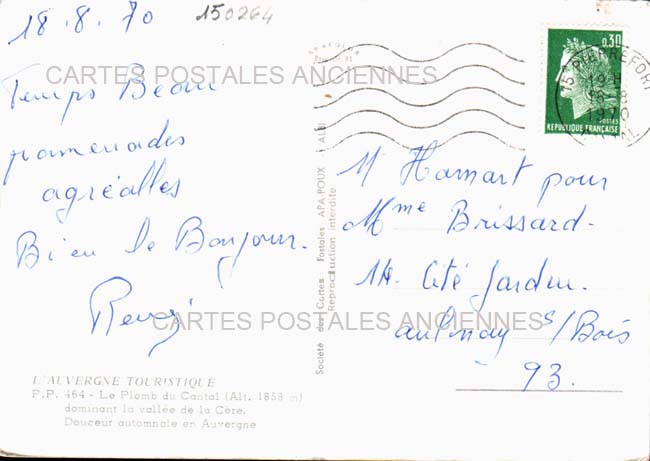 18.8.70
150264
CARTES POSTALES ANCIENNES
Temps Beau
promenades
agréables
Bien le Bonjour.
CARTES POSTALES ANCIENNES
L'AUVERGNE TOURISTIQUE
P.P. 464 - Le Plomb du Cantal (Alt. 1858 m)
dominant la vallée de la Cère.
Douceur automnale en Auvergne
Société des Cartes Postales APA-POUX - ALBI
Reproduction interdite
0,30
POSTES
REPUBLIQUE FRANÇAISE
15 PIERREFORT
1970
M Hamart pour
Mme Brissard.
14 Cité Jardin.
aulnay s/Bois
93.